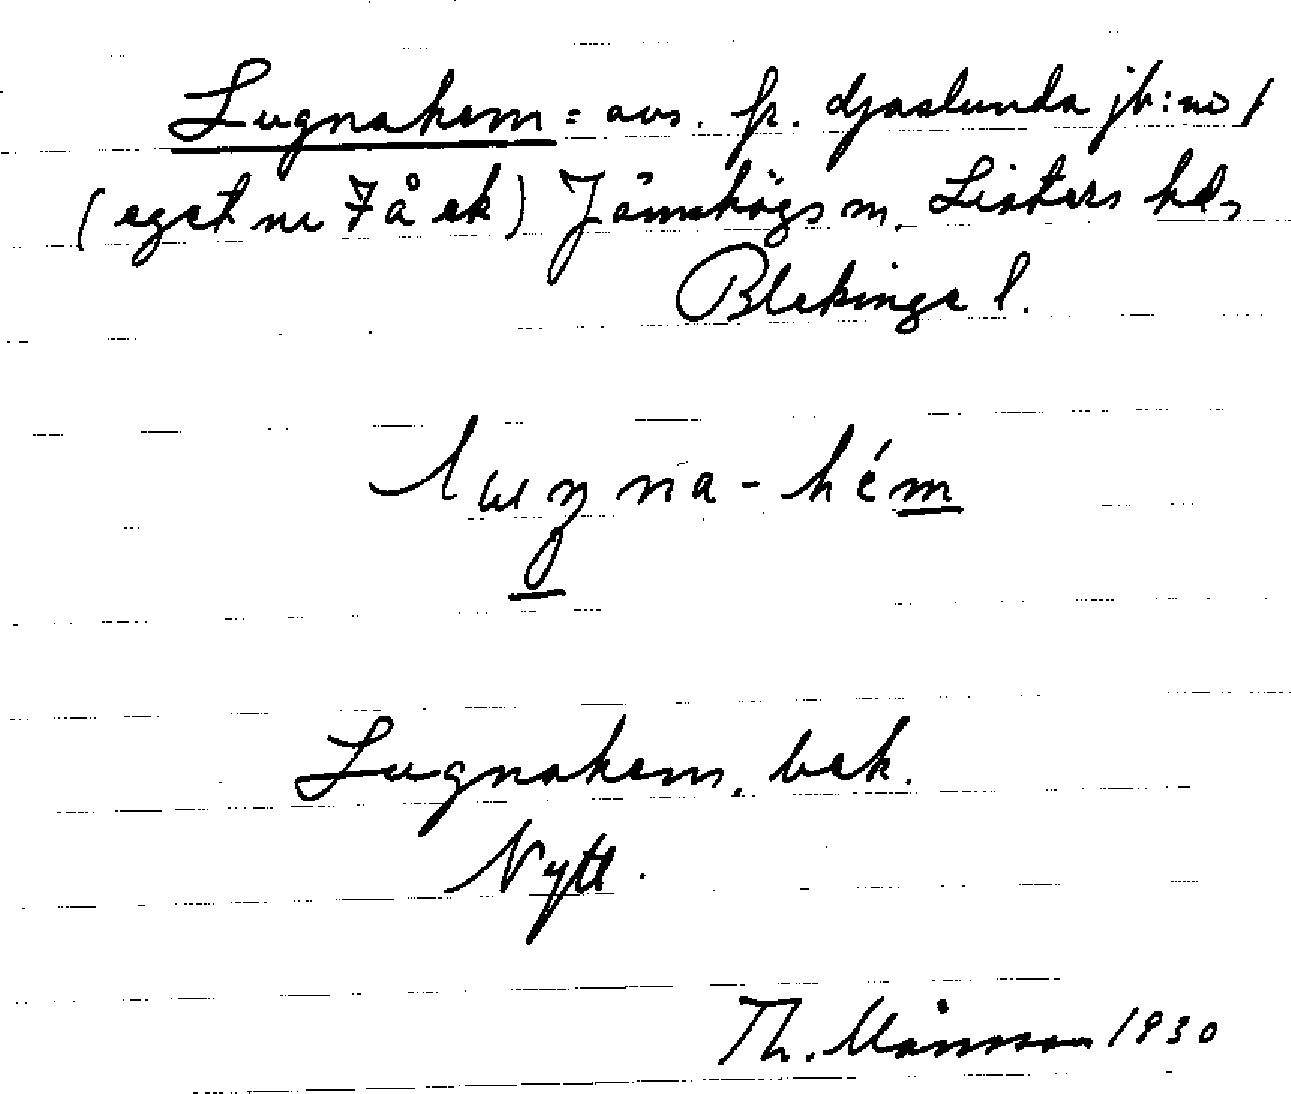 Lugnahem = avs. fr. djaslunda jb:no 1
(eget nr 7 å ek) Jämshögs sn, Listers hd,
Blekinge l.
luŋna-hém
Lugnahem, bek.
Nytt.
Th. Månsson 1930